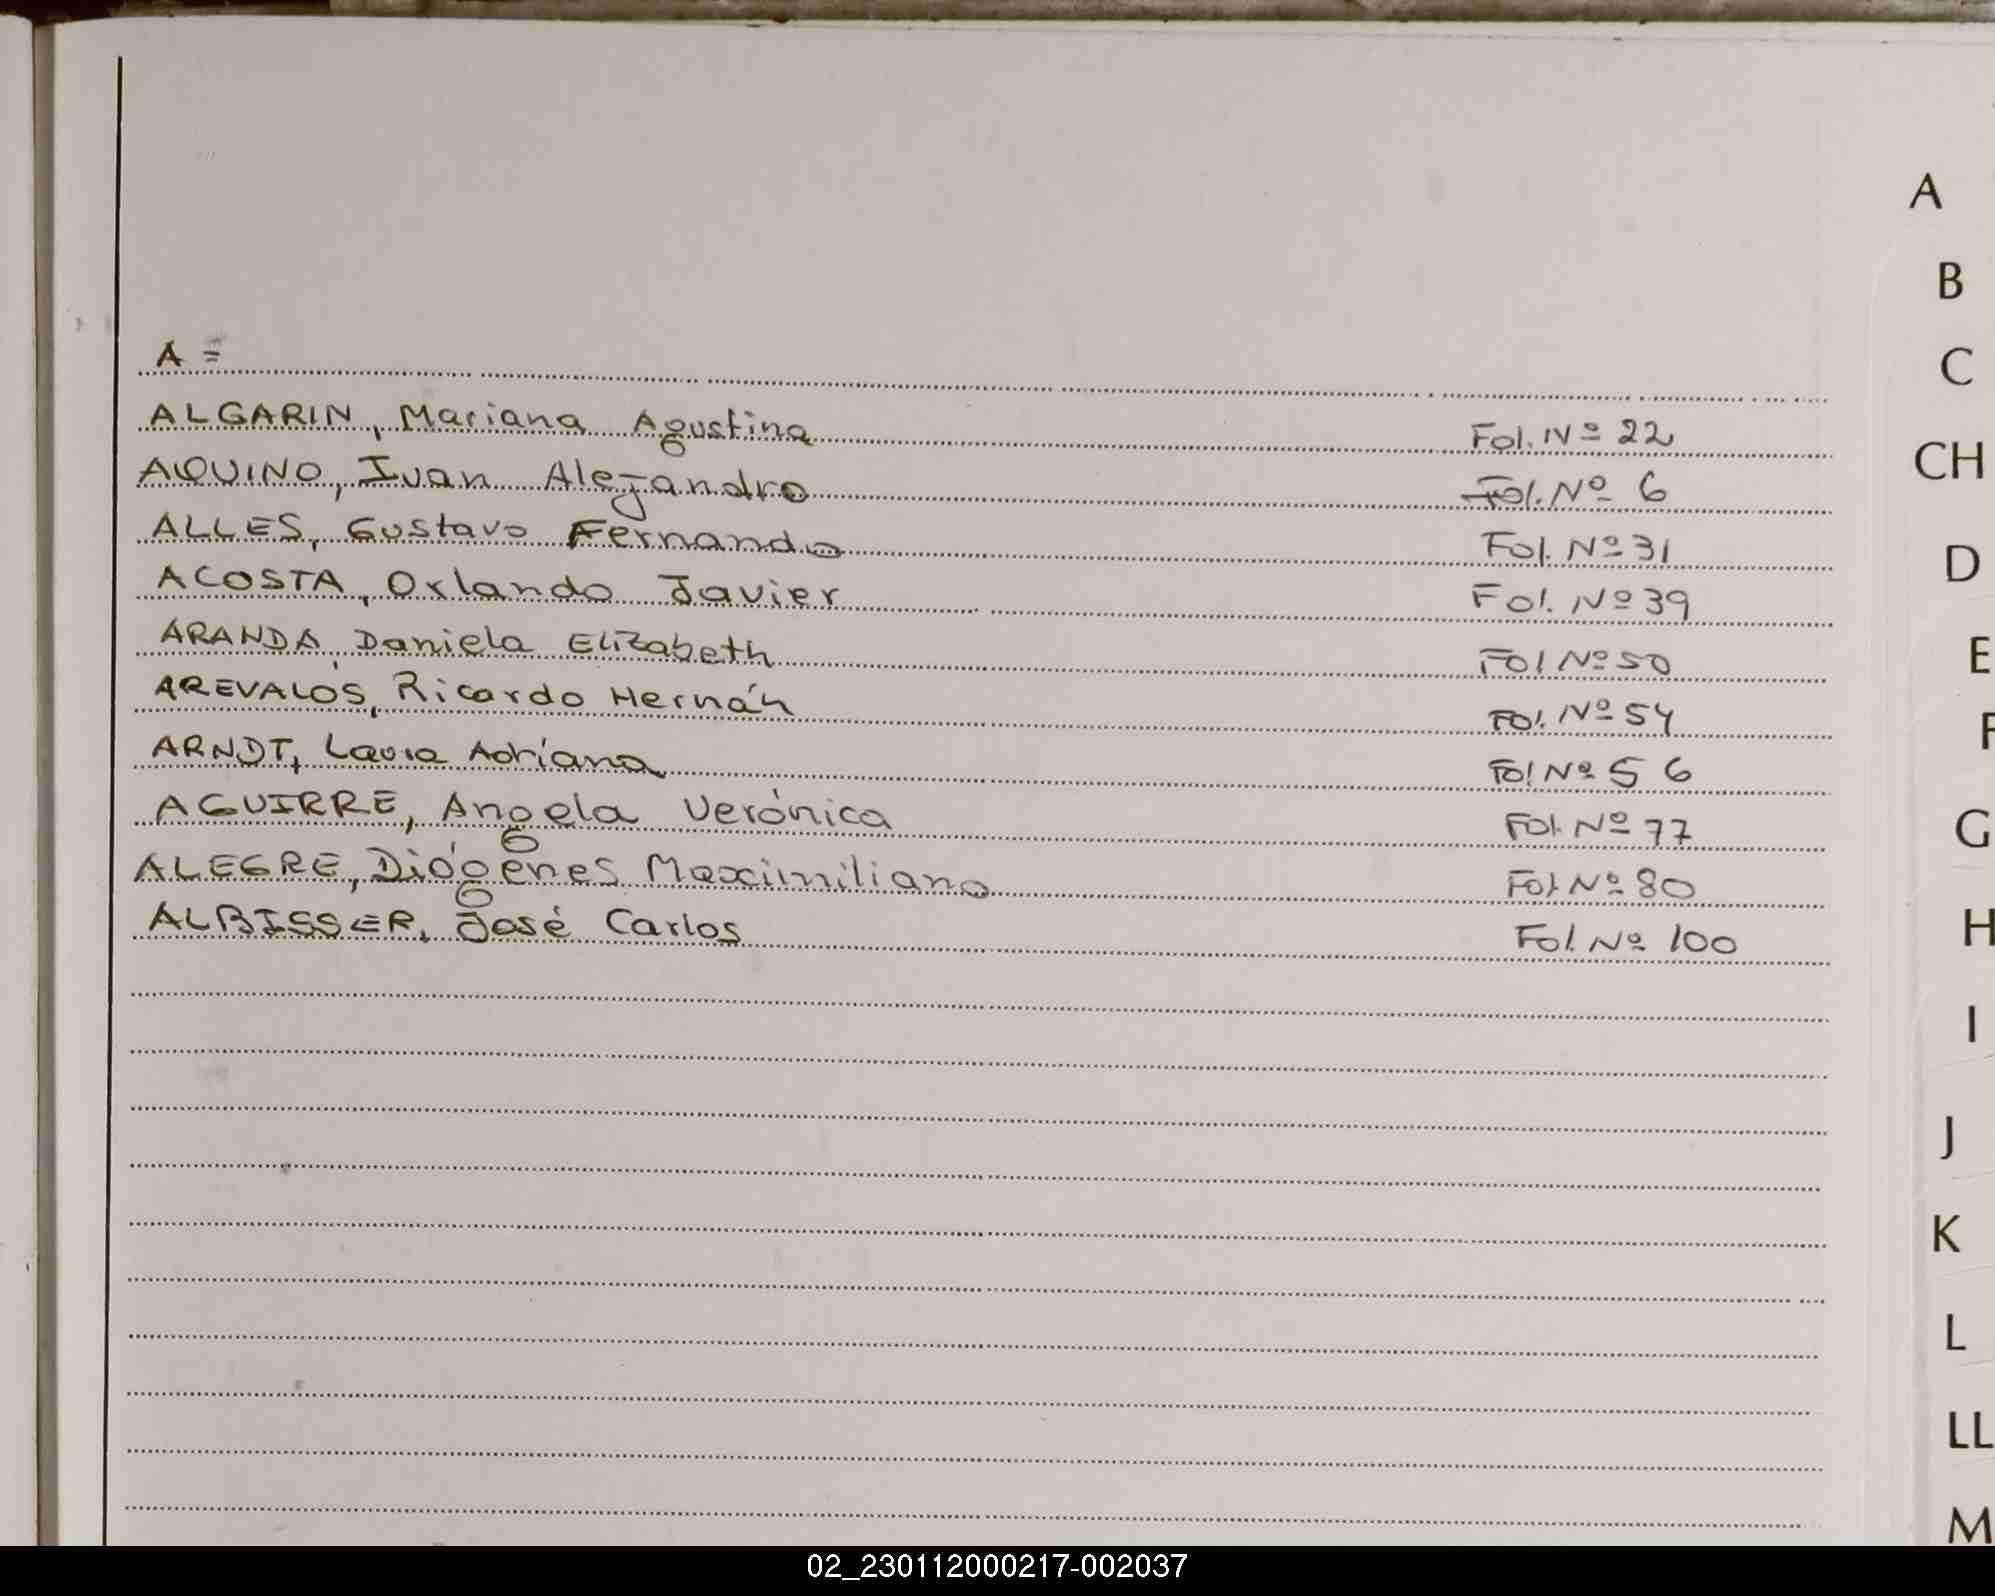 A =
ALGARIN, Mariana Agustina Fol. Nº 22
AQUINO, Ivan Alejandro Fol. Nº 6
ALLES, Gustavo Fernando Fol. Nº 31
ACOSTA, Orlando Javier Fol. Nº 39
ARANDA, Daniela Elizabeth Fol Nº 50
AREVALOS, Ricardo Hernán Fol. Nº 54
ARNDT, Laura Adriana Fol Nº 56
AGUIRRE, Angela Verónica Fol. Nº 77
ALEGRE, Diógenes Maximiliano Fol. Nº 80
ALBISSER, José Carlos Fol. Nº 100
A
B
C
CH
D
E
F
G
H
I
J
K
L
LL
M
02_230112000217-002037